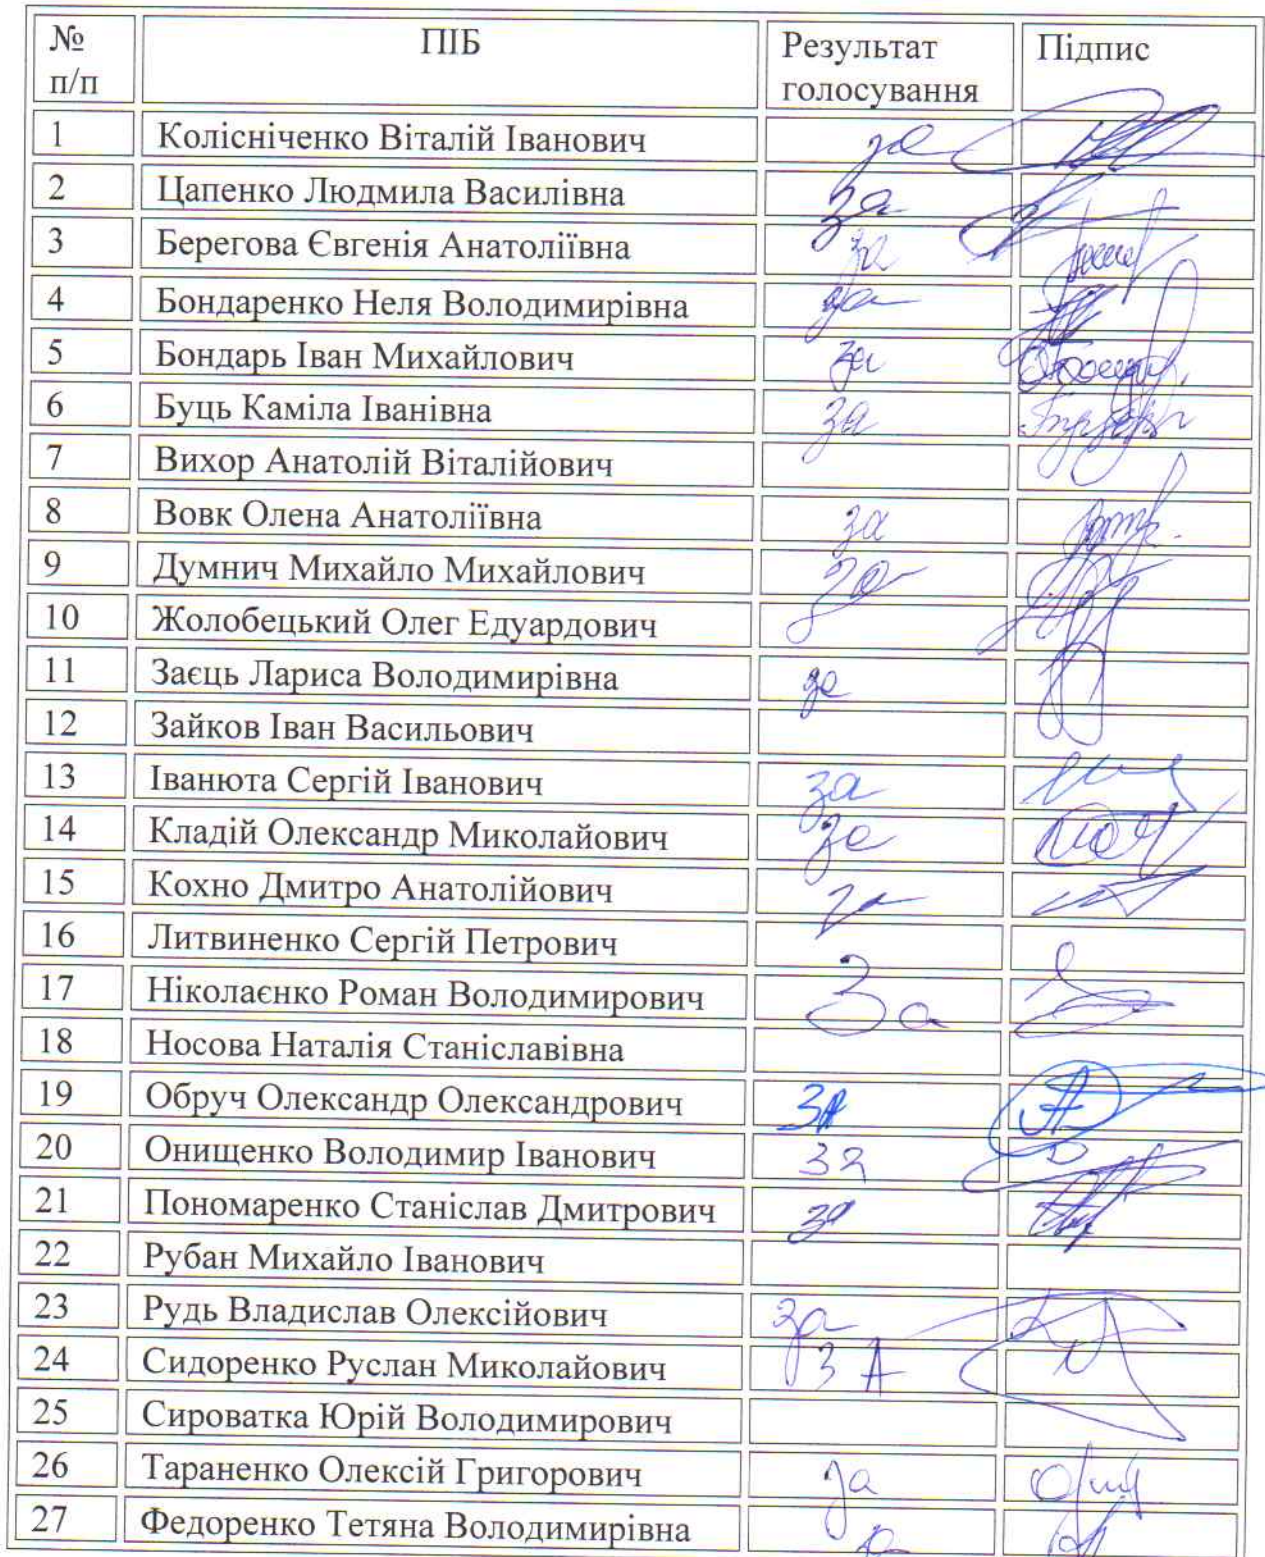 № п/п ПІБ Результат голосування Підпис
1 Колісніченко Віталій Іванович за
2 Цапенко Людмила Василівна за
3 Берегова Євгенія Анатоліївна за
4 Бондаренко Неля Володимирівна за
5 Бондарь Іван Михайлович за
6 Буць Каміла Іванівна за
7 Вихор Анатолій Віталійович
8 Вовк Олена Анатоліївна за
9 Думнич Михайло Михайлович за
10 Жолобецький Олег Едуардович
11 Заєць Лариса Володимирівна за
12 Зайков Іван Васильович
13 Іванюта Сергій Іванович за
14 Кладій Олександр Миколайович за
15 Кохно Дмитро Анатолійович за
16 Литвиненко Сергій Петрович
17 Ніколаєнко Роман Володимирович За
18 Носова Наталія Станіславівна
19 Обруч Олександр Олександрович ЗА
20 Онищенко Володимир Іванович за
21 Пономаренко Станіслав Дмитрович за
22 Рубан Михайло Іванович
23 Рудь Владислав Олексійович за
24 Сидоренко Руслан Миколайович ЗА
25 Сироватка Юрій Володимирович
26 Тараненко Олексій Григорович за
27 Федоренко Тетяна Володимирівна